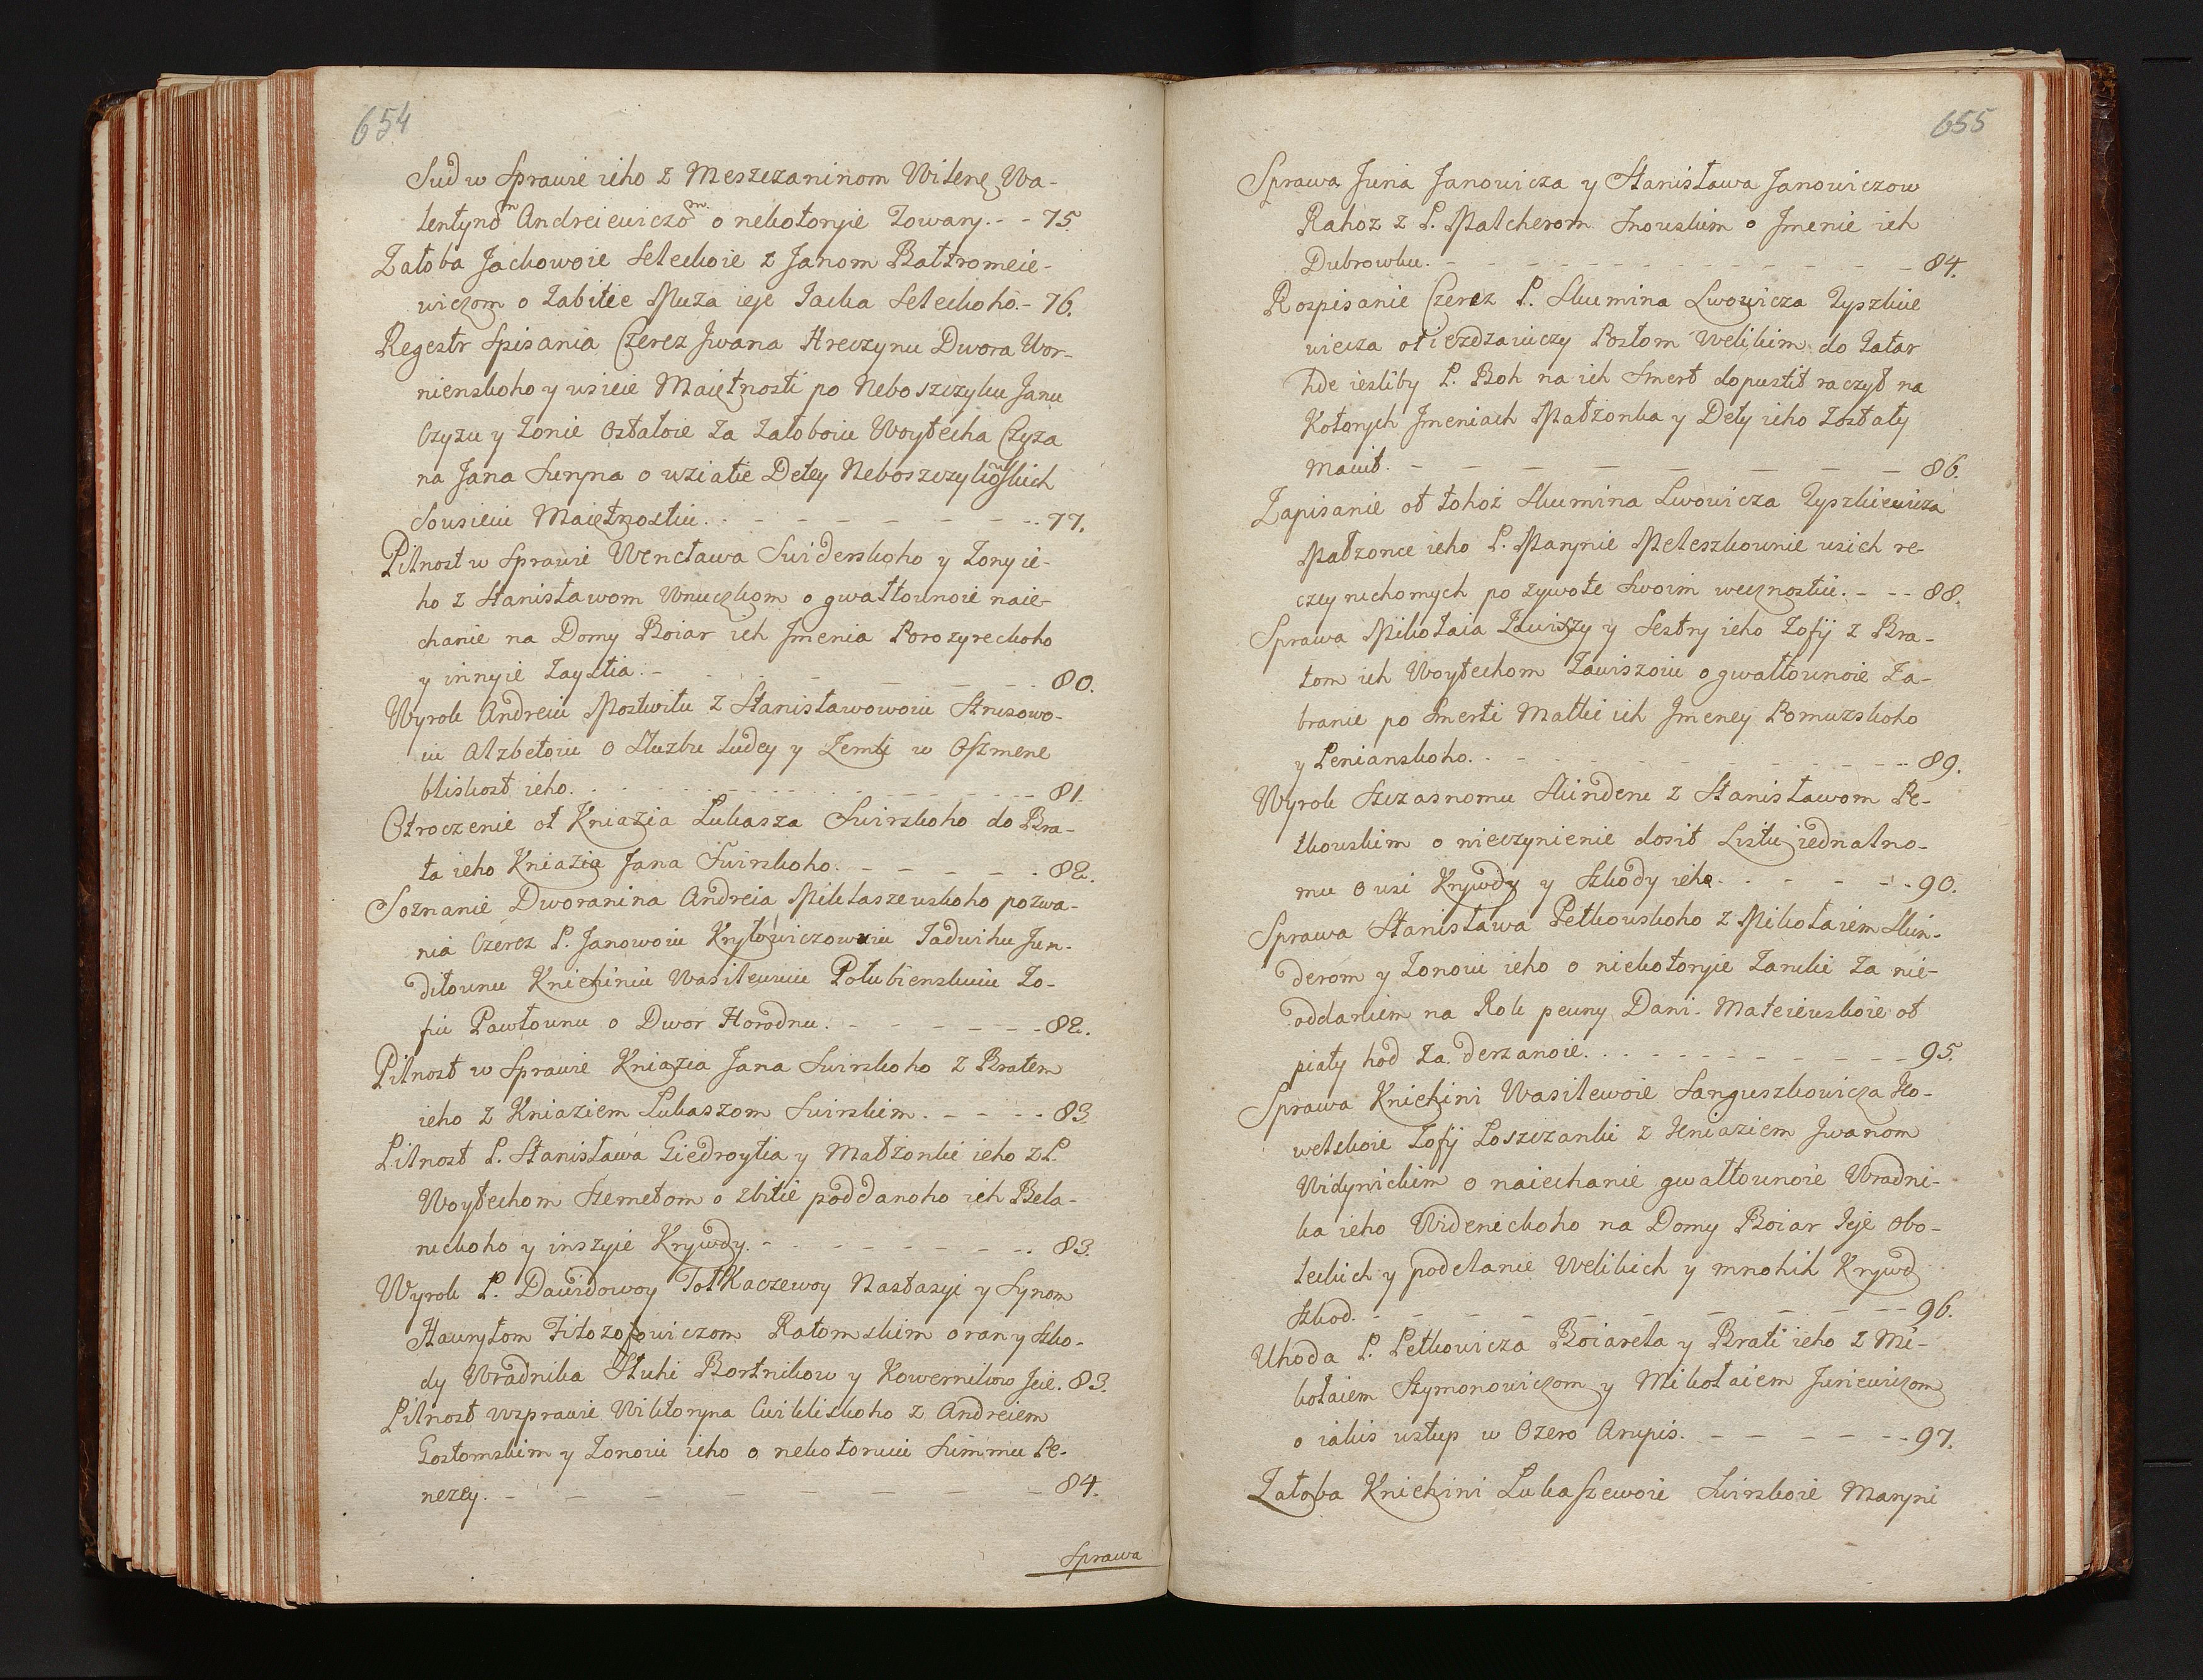 654
Sud w Sprawie ieho z Meszczaninom Wilens. Wa-
lentynom Andreiewiczom o nekotoryie Towary. - - 75.
Załoba Jackowoie Seleckoie z Janom Bałtromeie-
wiczom o Zabitie Muża ieje Jacka Seleckoho. - 76.
Regestr Spisania Czerez Jwana Hreczynu Dwora Wor-
nienskoho y wsieie Maiętnosti po Neboszczyku Janu
Czyzu y Zonie Ostałoie za Załoboiu Woytecha Czyza
na Jana Suryna o wziatie Detey Neboszczykowskich
Sousieiu Maiętnostiu. - - - - - - 77.
Pilnost w Sprawie Wencława Swiderskoho y Zony ie-
ho z Stanisławom Wnuczkom o gwałtownoie naie-
chanie na Domy Boiar ich Jmenia Porozyreckoho
y innyie Zaystia. - - - - - - 80.
Wyrok Andreiu Mostwiłu z Stanisławowoiu Stri­zowo-
iu Alzbetoiu o Służbu Ludey y Zemli w Oszmene
bliskost ieho. - - - - - - 81.
Otroczenie ot Kniazia Lukasza Swirskoho do Bra-
ta ieho Kniazia Jana Swirskoho. - - - - - 82.
Soznanie Dworanina Andreia Mikłaszewskoho pozwa-
nia Czerez P. Janowoiu Kryłowiczowuiu Jadwihu Jun-
diłownu Kniehiniu Wasilewuiu Połubienskuiu Zo-
fiu Pawłownu o Dwor Horodnu. - - - - - - 82.
Pilnost w Sprawie Kniazia Jana Swirskoho z Bratem
ieho z Kniaziem Lukaszom Swirskim. - - - - 83.
Pilnost P. Stanisława Giedroytia y Małżonki ieho z P.
Woytechom Szemetom o zbitie poddanoho ich Bela-
nickoho y inszyie Krywdy. - - - - - - 83.
Wyrok P. Dawidowoy Tołkaczewoy Nastasyi y Synom
Hawryłom Fiłozofowiczom Ratomskim o rany Szko-
dy Wradnika Sluhi Bortnikow y Kowernikow Jeie. 83.
Pilnost w sprawie Wiktoryna Cwikliskoho z Andreiem
Gostomskim y Zonoiu ieho o nekotoruiu Summu Pe-
nezey. - - - - - - - - 84.
Sprawa
655
Sprawa Juria Janowicza y Stanisława Janowiczow
Rahoz z P. Malcherom Snowskim o Jmenie ich
Dubrowku. - - - - - - - - 84.
Rospisanie Czerez P. Skumina Lwowicza Tyszkie
wicza otiezdzaiuczy Posłom Welikim do Tatar
hde iesliby P. Boh na ich Smert dopustit raczył na
Kotorych Jmeniach Małżonka y Dety ieho Zostaty
maiut. - - - - - - - - 86.
Zapisanie ot tohoż Skumina Lwowicza Tyszkiewicza
Małzonce ieho P. Marynie Meleszkownie wsich re-
czey ruchomych po zywote Swoim wecznostiu. - - - 88.
Sprawa Mikołaia Zawiszy y Sestry ieho Zofij z Bra-
tom ich Woytechom Zawiszoiu o gwałtownoie Za-
branie po Smerti Matki ich Jmeney Pomuzskoho
y Penianskoho. - - - - - - - - 89.
Wyrok Szczasnomu Skinderu z Stanisławom Pe-
tkowskim o nieczynienie dosit Listu iednalno-
mu o wsi Krywdy y Szkody ieho. - - - - - 90.
Sprawa Stanisława Petkowskoho z Mikołaiem Skin-
derom y Zonoiu ieho o niekotoryie Zaruki za nie-
oddaniem na Rok pewny Dani. Mateiewskoie ot
piaty hod za derzanoie. - - - - - - - 95.
Sprawa Kniehini Wasilewoie Sanguszkowicza Ko-
welskoie Zofij Loszczanki z Kniaziem Jwanom
Widynickim o naiechanie gwałtownoie Wradni-
ka ieho Widenickoho na Domy Boiar Jeje Obo-
leckich y podelanie Welikich y mnohih Krywd
Szkod. - - - - - - - - 96.
Uhoda P. Petkowicza Boiarela y Brati ieho z Mi-
kołaiem Szymonowiczom y Mikołaiem Juriewiczom
o iakis wstup w Ozero Arupis. - - - - - - 97.
Załoba Kniehini Lukaszewoie Swirskoie Maryni